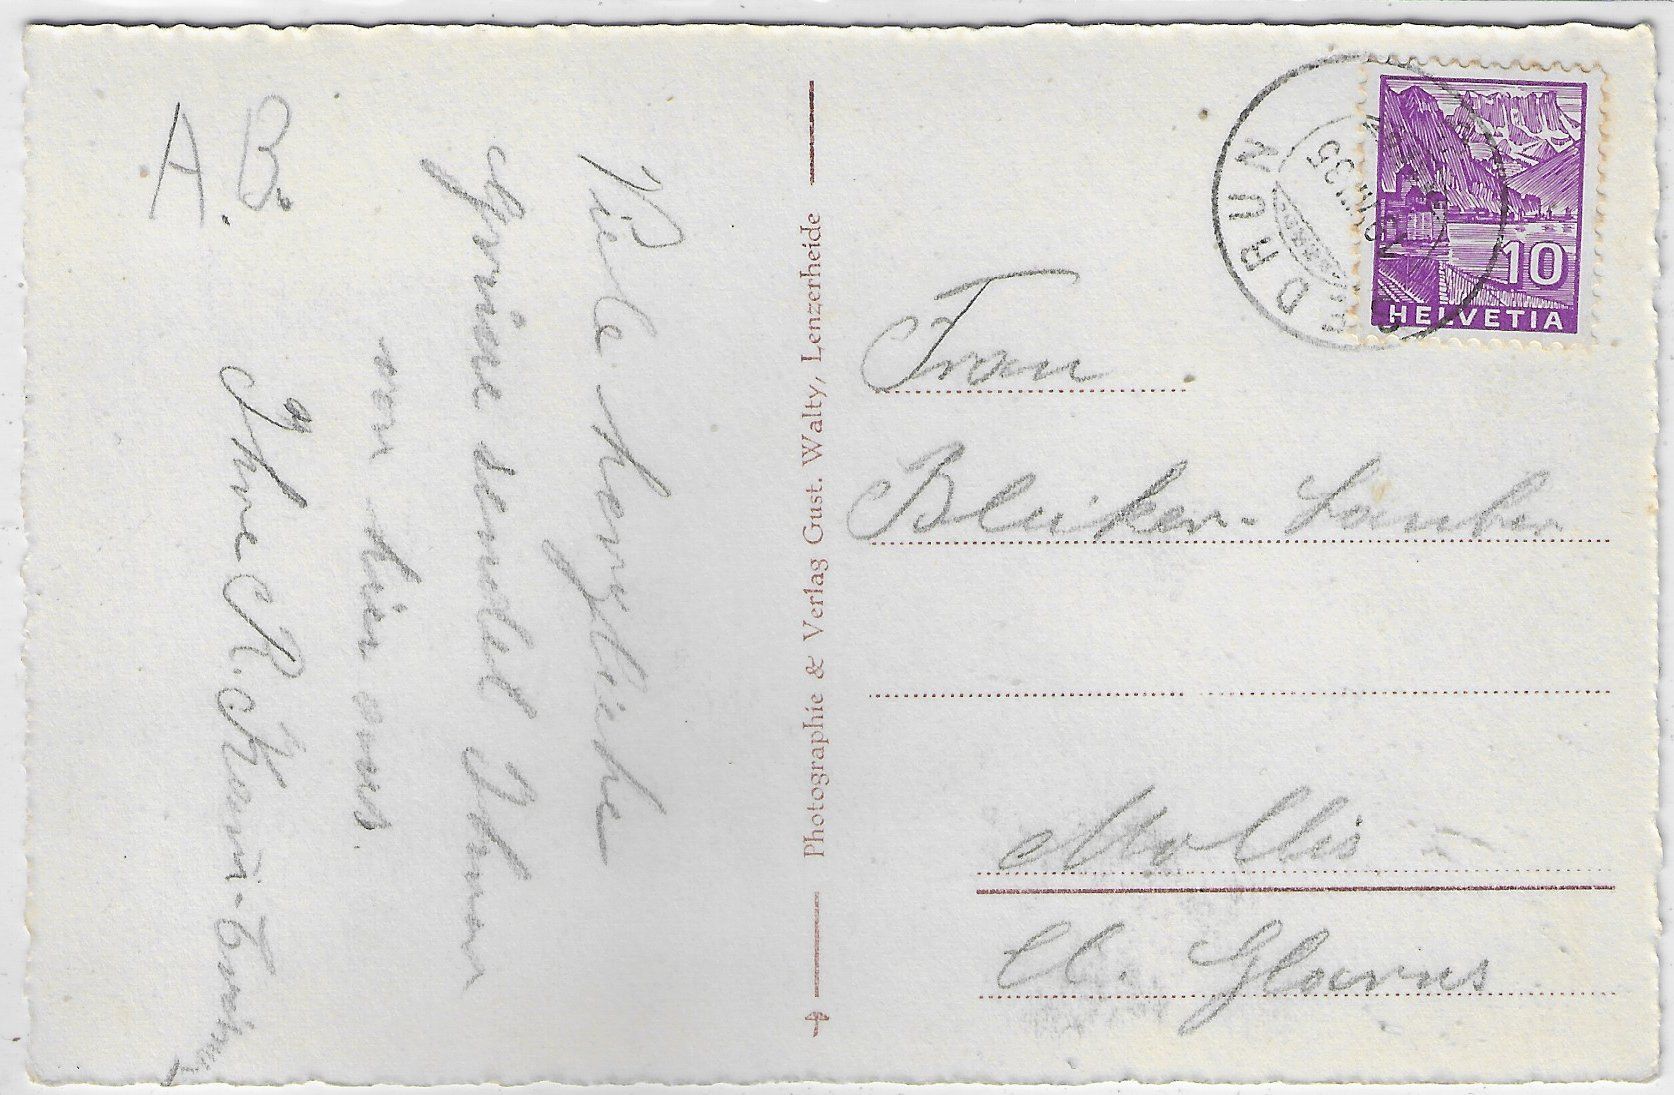 A. B.
Viele herzliche
Grüsse sendet Ihnen
von hier aus
Ihre R. Kern-
Photographie & Verlag Gust. Walty, Lenzerheide
SEDRUN
VIII.35
10
HELVETIA
Frau
Bleiker-Lauber
Mollis
Ct. Glarus